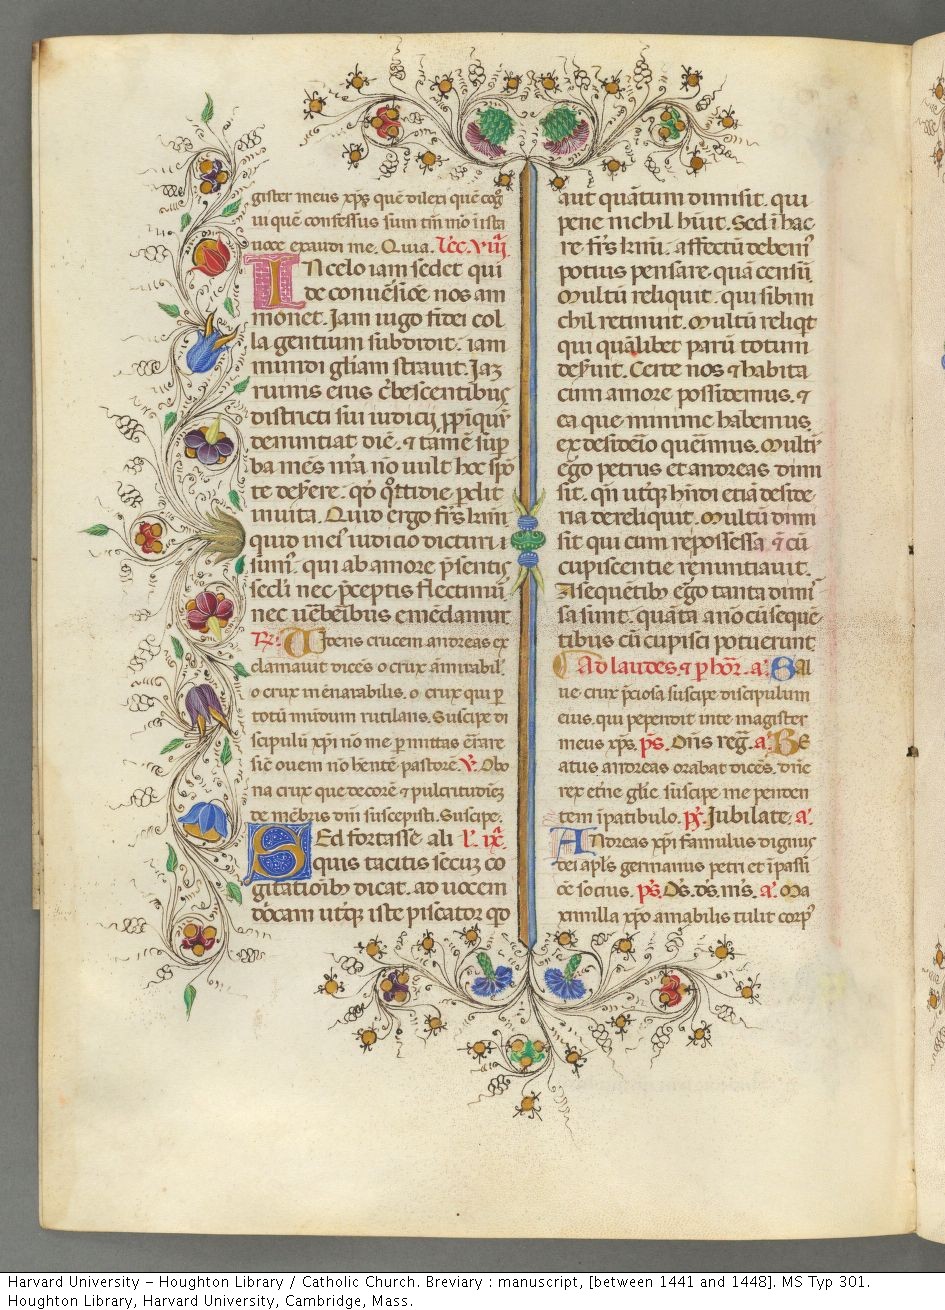 gister meus xp̄s quē dilexi quē cog̃
ui quē confessus sum tm̄ mō ista
uoce exaudi me. Quia. Lec. viii.
IN celo iam sedet qui
de conuērsiōe nos am
monet. Iam iugo fidei col
la gentium subdidit. iam
mundi gliam strauit. Iaz
ruinis eius c̄bescentibus
districti sui iudicij p̄pīquū
denuntiat diē. ⁊ tamē sup̄
ba mēs nr̄a nō uult hoc spō
te dēs̄ere. qđ q̄ttidie p̄dit
inuita. Quid ergo fr̄s kr̄mi
quid in eius iudicio dicturi
sumꝰ. qui ab amore p̄sentis
sec̄li nec p̄ceptis flectimur
nec uērberibus emēdamur
R̃. Videns crucem andreas ex
clamauit dicēs o crux admirabil̓
o crux inēnarabilis. o crux qui p
totū mundum rutilans. Suscipe di
scipulū xp̄i nō me permittas ērrare
sic̄ ouem nō hēntē pastorē. V̓. O bo
na crux que decorē ⁊ pulcritudinez
de mēbris dn̄i suscepisti. Suscipe.
SEd fortasse ali L̓. ix.
quis tacitis secuz co
gitationibꝫ dicat. ad uocem
dōicam utqꝫ iste piscator qđ
aut quantum dimisit. qui
pene nichil h̄uit. Sed ī hac
re fr̄s kr̄mi. affectū debemꝰ
potius pensare quā censū.
Multū reliquit. qui sibi ni
chil retinuit. Multū reliqt̓
qui quālibet parū totum
dēs̄uit. Certe nos ⁊ habita
cum amore possidemus. ⁊
ea que minime habemus.
ex desidēio quērimus. Multū
ēgo petrus et andreas dimi
sit. qn̄ utqꝫ hn̄di etiā deside
ria dereliquit. Multū dimi
sit qui cum re possessa ⁊ cū
cupiscentie renuntiauit.
A sequētibꝫ ēgo tanta dimi
sa sunt. quāta a nō cū seque
tibus cū cupisci potuerunt
Ad laudes. ⁊ p hōr. a. Sal
ue crux p̄ciosa suscipe discipulum
eius. qui pependit in te magister
meus xp̄s. ps̄. Dn̄s reg̃. a. Be
atus andreas orabat dicēs. dn̄e
rex etn̄e glie suscipe me penden
tem ī patibulo. ps̄. Jubilate. a.
Andreas xp̄i famulus dignus
dei apl̄s germanus petri et ī passi
ōe socius. ps̄. Dꝰs. ds̄. mꝰs. a. Ma
ximilla xp̄o amabilis tulit corpꝰ
Harvard University – Houghton Library / Catholic Church. Breviary : manuscript, [between 1441 and 1448]. MS Typ 301.
Houghton Library, Harvard University, Cambridge, Mass.